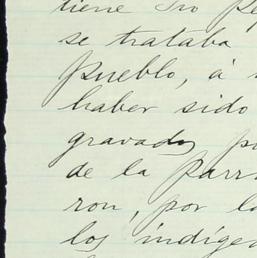 tiene
se trataba
pueblo, á
haber sido
gravados
de la Parr
ron, por lo
los indígen